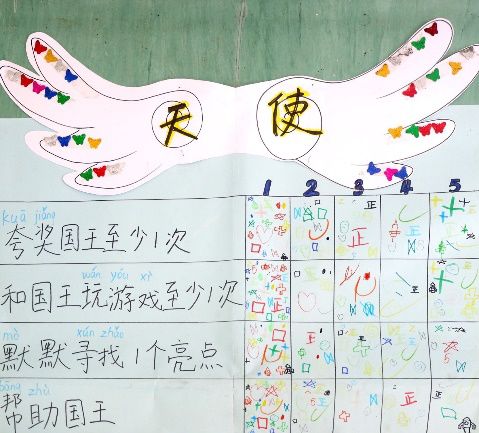 天 使
1 2 3 4 5
kuā jiǎng
夸奖国王至少1次
wán yóu xì
和国王玩游戏至少1次
mò xún zhǎo
默默寻找1个亮点
bāng zhù
帮助国王